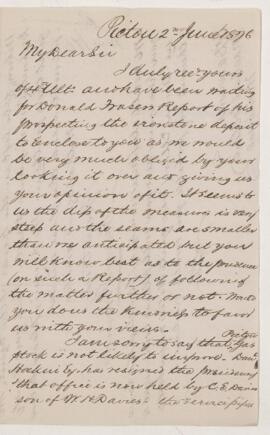 Pictou 2nd June 1876
My Dear Sir
I duly recd yours
of 4 Ult. and have been waiting
for Donald Frasers Report of his
prospecting the ironstone deposit
to enclose to you as we would
be very much obliged by your
looking it over and giving us
your opinion of it. It seems to
us the dip of the measures is very
steep and the seams are smaller
than we anticipated but you
will know best as to the
(on such a Report) of following
the matter further or not. Would
you do us the kindness to favor
us with your views.
I am sorry to say that Pictou Gas
stock is not likely to improve.
has resigned the
that office is now held by C. E. Davi
son of W. H. Davies the